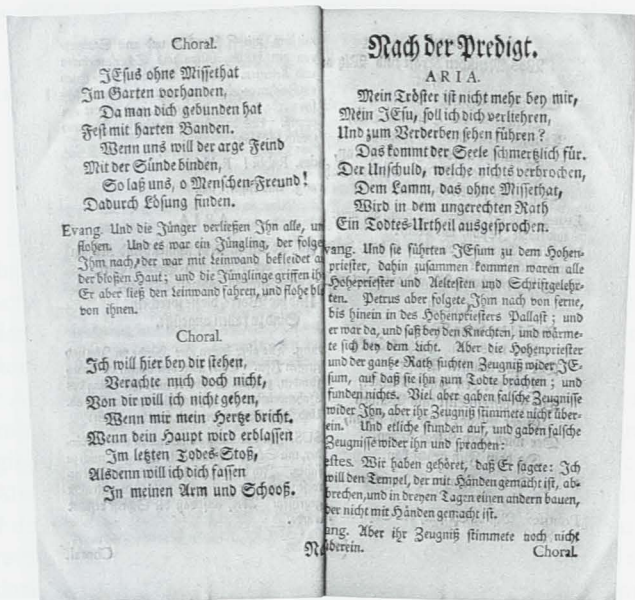 Choral.
JEsus ohne Missethat
Im Garten vorhanden,
Da man dich gebunden hat
Fest mit harten Banden.
Wenn uns will der arge Feind
Mit der Sünde binden,
So laß uns, o Menschen-Freund!
Dadurch Lösung finden.
Evang. Und die Jünger verließen Ihn alle, un
flohen. Und es war ein Jüngling, der folge
Ihm nach, der war mit Leinwand bekleidet a
der bloßen Haut; und die Jünglinge griffen ih
Er aber ließ den Leinwand fahren, und flohe bl
von ihnen.
Choral.
Ich will hier bey dir stehen,
Verachte mich doch nicht,
Von dir will ich nicht gehen,
Wenn mir mein Hertze bricht.
Wenn dein Haupt wird erblassen
Im letzten Todes-Stoß,
Alsdenn will ich dich fassen
In meinen Arm und Schooß.
Nach der Predigt.
ARIA.
Mein Tröster ist nicht mehr bey mir,
Mein JEsu, soll ich dich verliehren,
Und zum Verderben sehen führen?
Das kommt der Seele schmertzlich für.
Der Unschuld, welche nichts verbrochen,
Dem Lamm, das ohne Missethat,
Wird in dem ungerechten Rath
Ein Todtes-Urtheil ausgesprochen.
vang. Und sie führeten JEsum zu dem Hohen-
priester, dahin zusammen kommen waren alle
Hohepriester und Aeltesten und Schriftgelehr-
ten. Petrus aber folgete Ihm nach von ferne,
bis hinein in des Hohenpriesters Pallast; und
er war da, und saß bey den Knechten, und wärme-
te sich bey dem Licht. Aber die Hohenpriester
und der gantze Rath suchten Zeugniß wider JE-
sum, auf daß sie ihn zum Todte brächten; und
funden nichts. Viel aber gaben falsche Zeugnisse
wider Ihn, aber ihr Zeugniß stimmete nicht über-
ein. Und etliche stunden auf, und gaben falsche
Zeugnisse wider ihn und sprachen:
estes. Wir haben gehöret, daß Er sagete: Ich
will den Tempel, der mit Händen gemacht ist, ab-
brechen, und in dreyen Tagen einen andern bauen,
der nicht mit Händen gemacht ist.
ang. Aber ihr Zeugniß stimmete noch nicht
überein. Choral.